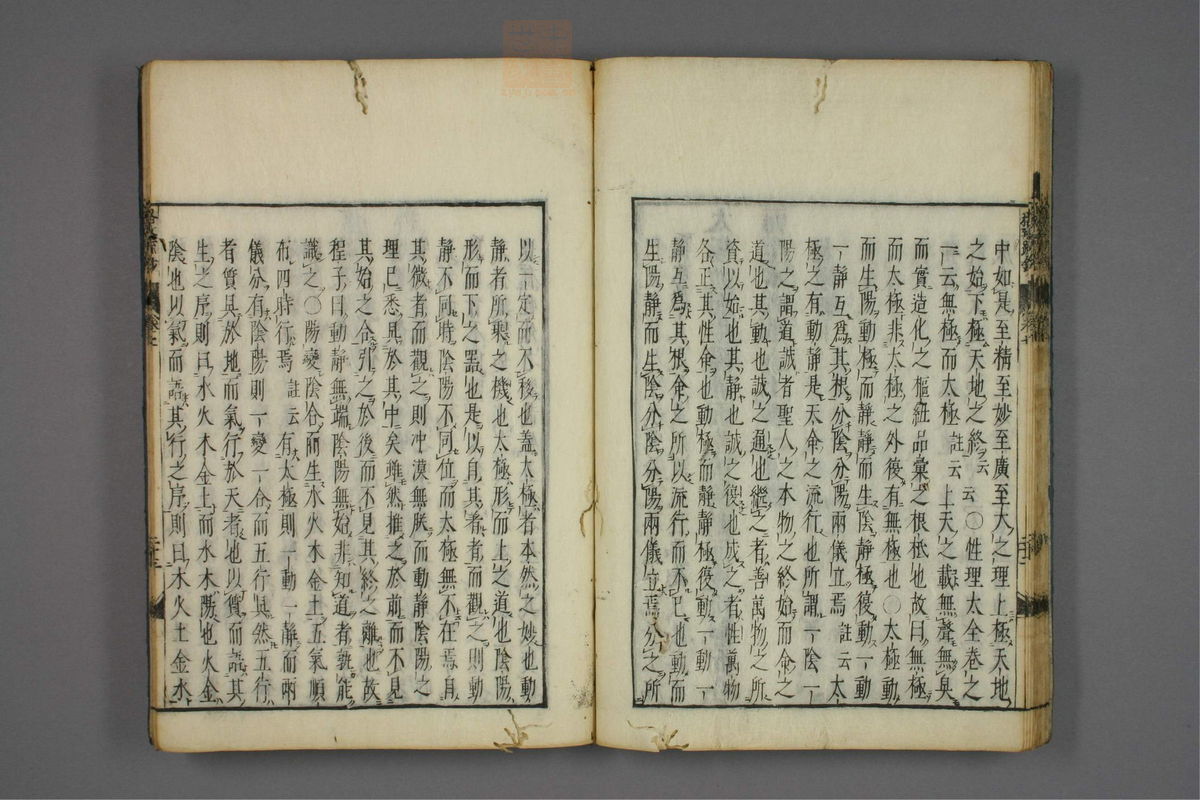 中如是至精至妙至廣至大之理上極天地
之始下極天地之終云云○性理大全卷之
一云無極而太極註云上天之載無聲無臭
而實造化之樞紐品彙之根柢也故曰無極
而太極非太極之外復有無極也○太極動
而生陽動極而靜靜而生陰靜極復動一動
一靜互爲其根分陰分陽兩儀立焉註云太
極之有動靜是天命之流行也所謂一陰一
陽之謂道誠者聖人之本物之終始而命之
道也其動也誠之通也繼之者善萬物之所
資以始也其靜也誠之復也成之者性萬物
各正其性命也動極而靜靜極復動一動一
靜互爲其根命之所以流行而不已也動而
生陽靜而生陰分陰分陽兩儀立焉分之所
以一定而不移也蓋太極者本然之妙也動
靜者所乘之機也太極形而上之道也陰陽
形而下之器也是以自其著者而觀之則動
靜不同時陰陽不同位而太極無不在焉自
其微者而觀之則冲漠無朕而動靜陰陽之
理已悉具於其中矣雖然推之於前而不見
其始之合引之於後而不見其終之離也故
程子曰動靜無端陰陽無始非知道者孰能
識之○陽變陰合而生水火木金土五氣順
布四時行焉註云有太極則一動一靜而兩
儀分有陰陽則一變一合而五行具然五行
者質具於地而氣行於天者也以質而語其
生之序則曰水火木金土而水木陽也火金
陰也以氣而語其行之序則曰木火土金水